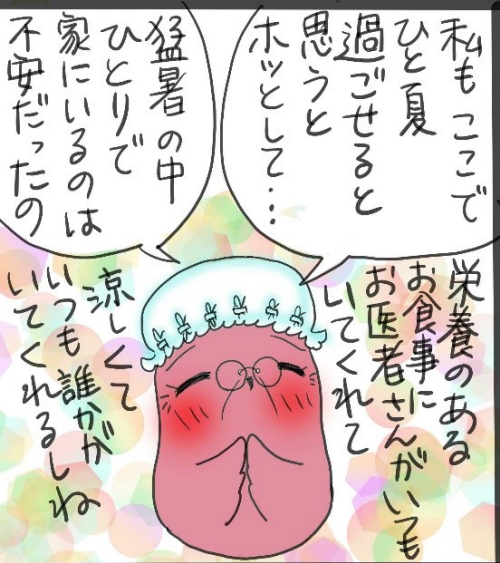 私もここで
ひと夏
過ごせると
思うと
ホッとして…
猛暑の中
ひとりで
家にいるのは
不安だったの
栄養のある
お食事に
お医者さんがいても
いてくれて
涼しくて
いつも誰かが
いてくれるしね